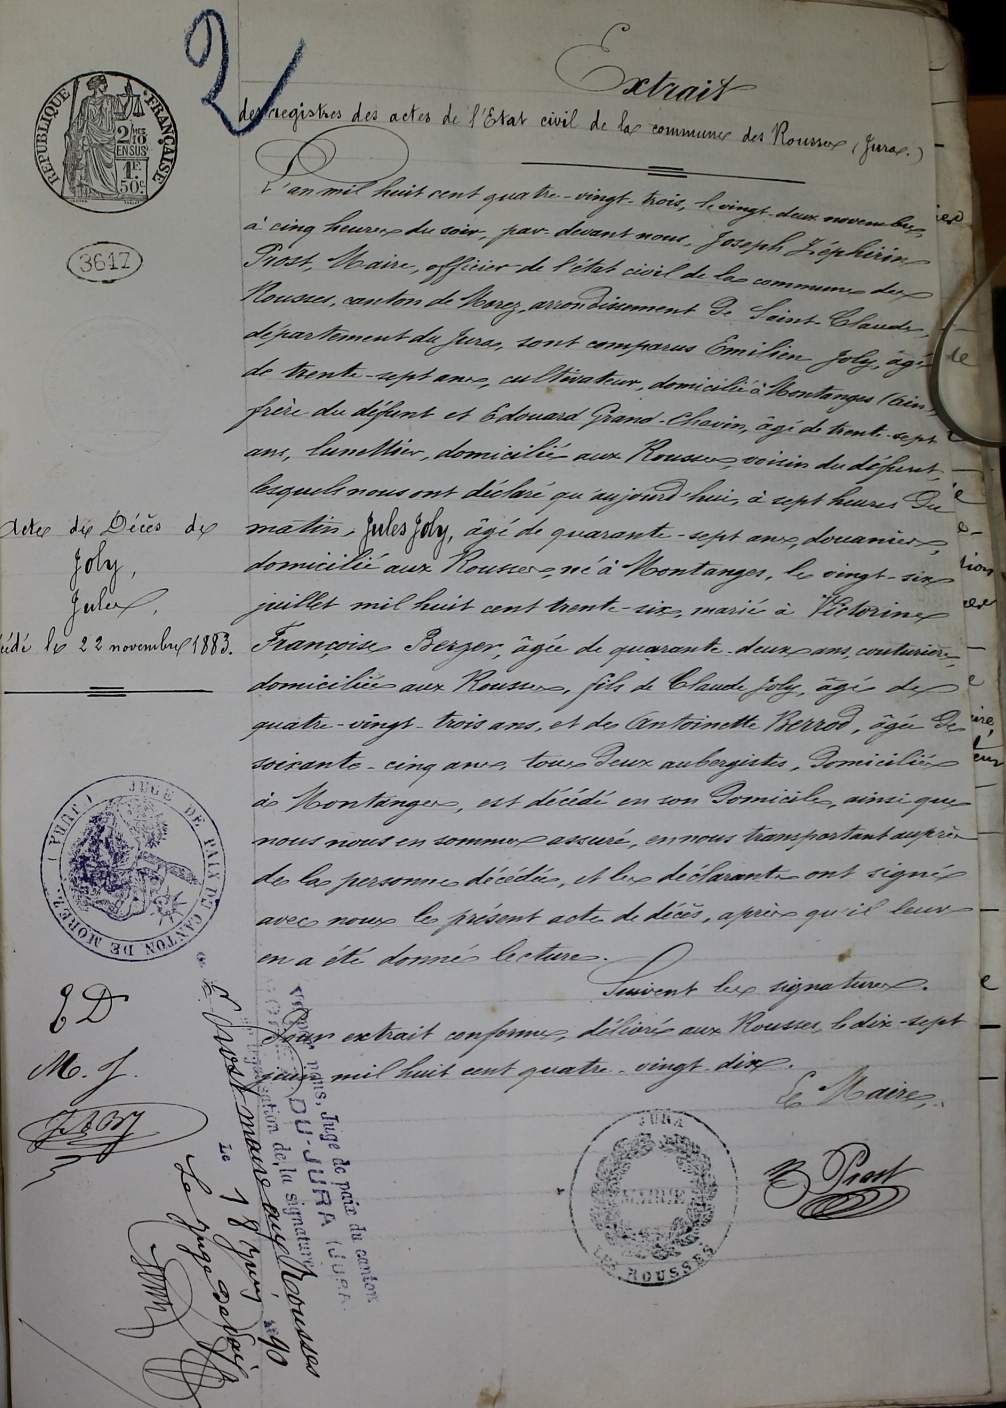 2
RÉPUBLIQUE FRANÇAISE
2/10 EN SUS
1F.50C.
3617
Extrait
des registres des actes de l'Etat civil de la commune des Rousses (Jura.)
L'an mil huit cent quatre-vingt-trois, le vingt-deux novembre,
à cinq heures du soir, par-devant nous, Joseph Zéphirin
Prost, Maire, officier de l'état civil de la commune des
Rousses, canton de Morez, arrondissement de Saint-Claude,
département du Jura, sont comparus Emilien Joly, âgé
de trente-sept ans, cultivateur, domicilié à Montanges (Ain),
frère du défunt et Edouard Grand-Chavin, âgé de trente-sept
ans, lunettier, domicilié aux Rousses, voisin du défunt,
lesquels nous ont déclaré qu'aujourd'hui, à sept heures du
matin, Jules Joly, âgé de quarante-sept ans, douanier,
domicilié aux Rousses, né à Montanges, le vingt-six
juillet mil huit cent trente-six, marié à Victorine
Françoise Berger, âgée de quarante-deux ans, couturière,
domiciliée aux Rousses, fils de Claude Joly, âgé de
quatre-vingt-trois ans, et de Antoinette Berrod, âgée de
soixante-cinq ans, tous deux aubergistes, domiciliés
à Montanges, est décédé en son domicile, ainsi que
nous nous en sommes assuré, en nous transportant auprès
de la personne décédée, et les déclarants ont signé
avec nous le présent acte de décès, après qu'il leur
en a été donné lecture.
Suivent les signatures.
Pour extrait conforme, délivré aux Rousses, le dix-sept
juin mil huit cent quatre-vingt-dix.
Le Maire,
Prost
JURA
MAIRIE
LES ROUSSES
Acte de Décès de
Joly,
Jules,
cédé le 22 novembre 1883.
JUGE DE PAIX DU CANTON DE MOREZ (JURA)
E D
M. J.
nous, Juge de paix du canton
DU-JURA (JURA
de la signature
Prost maire aux Rousses
Le 18 juin 1890
Le Juge de Paix